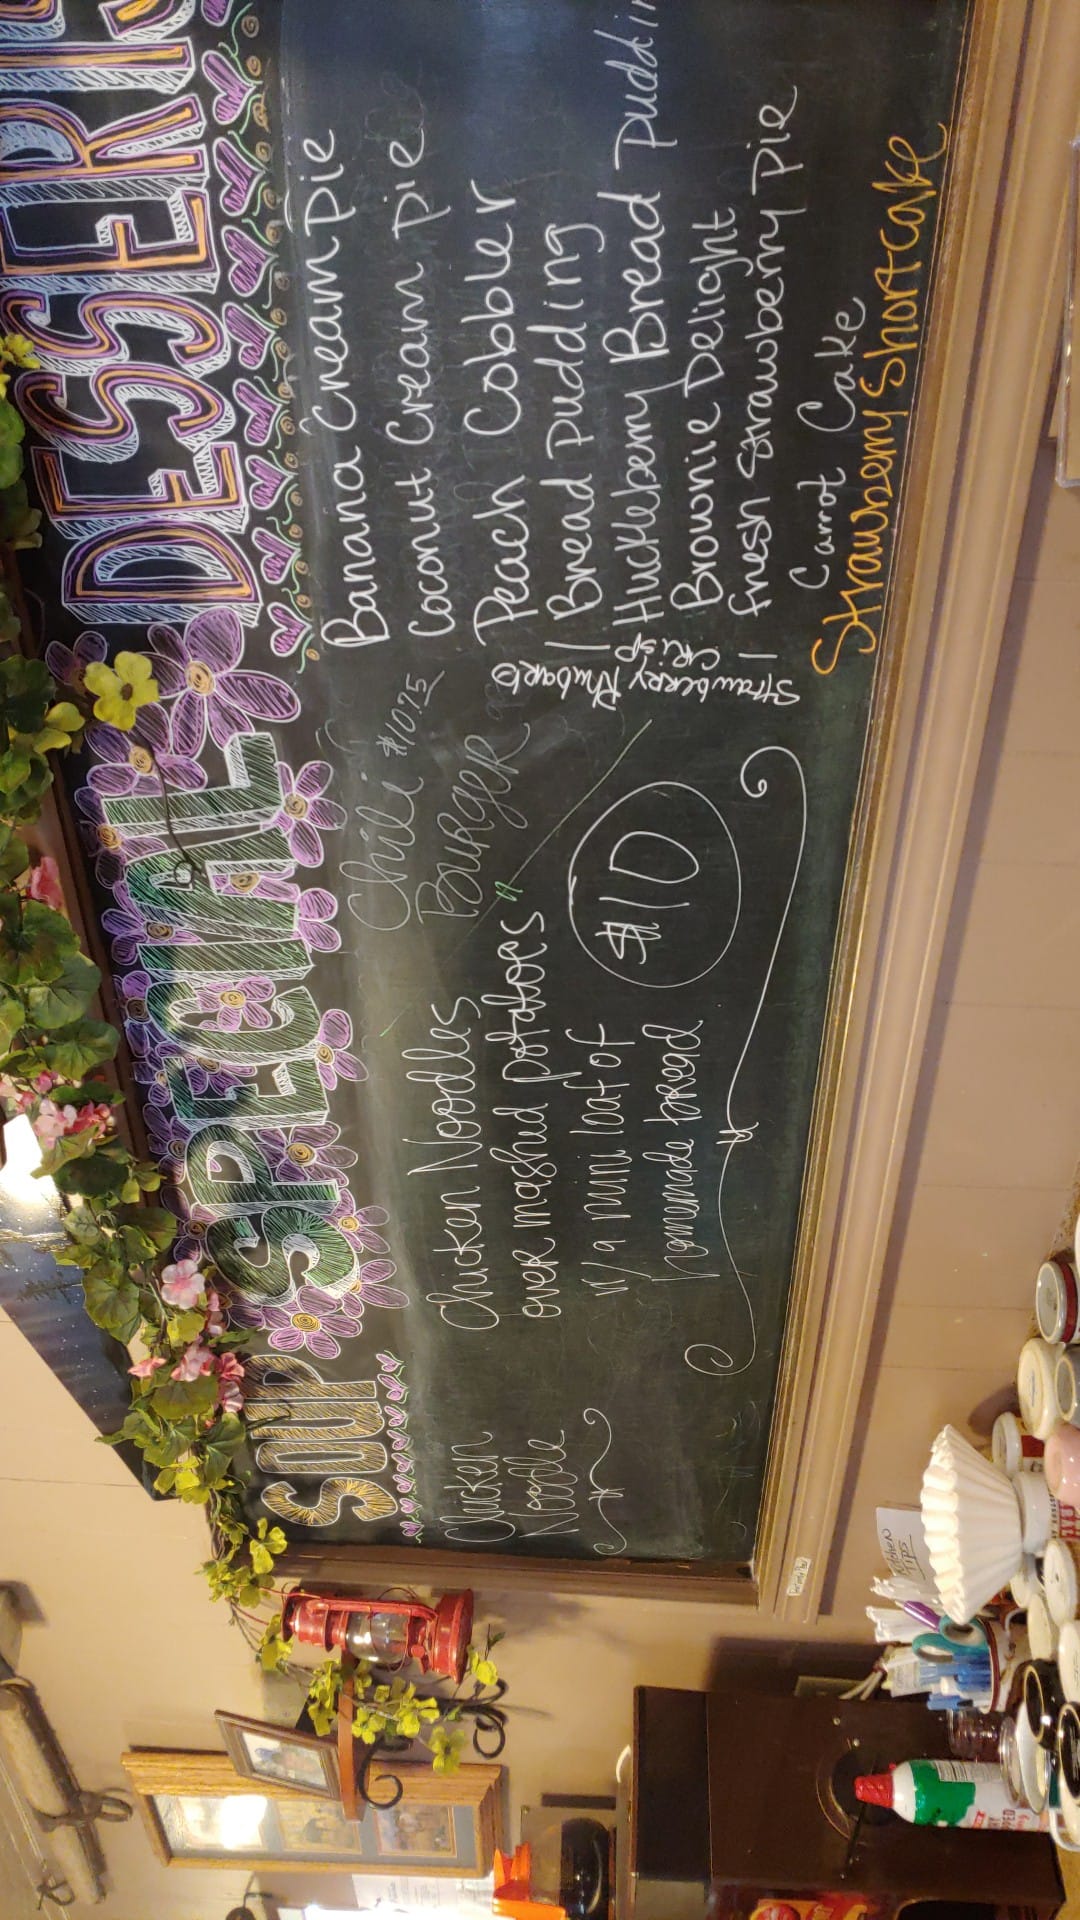 SOUP
Chicken
Noodle
SPECIAL
Chili $10.75
Burger
Chicken Noodles
over mashed potatoes
w/ a mini loaf of
homemade bread
$10
DESSERTS
Banana Cream pie
Coconut Cream pie
Peach Cobbler
Bread pudding
Huckleberry Bread puddin
Brownie Delight
fresh strawberry pie
Carrot Cake
Strawberry Shortcake
Strawberry Rhubarb
CRisp
Kitchen
TIPS